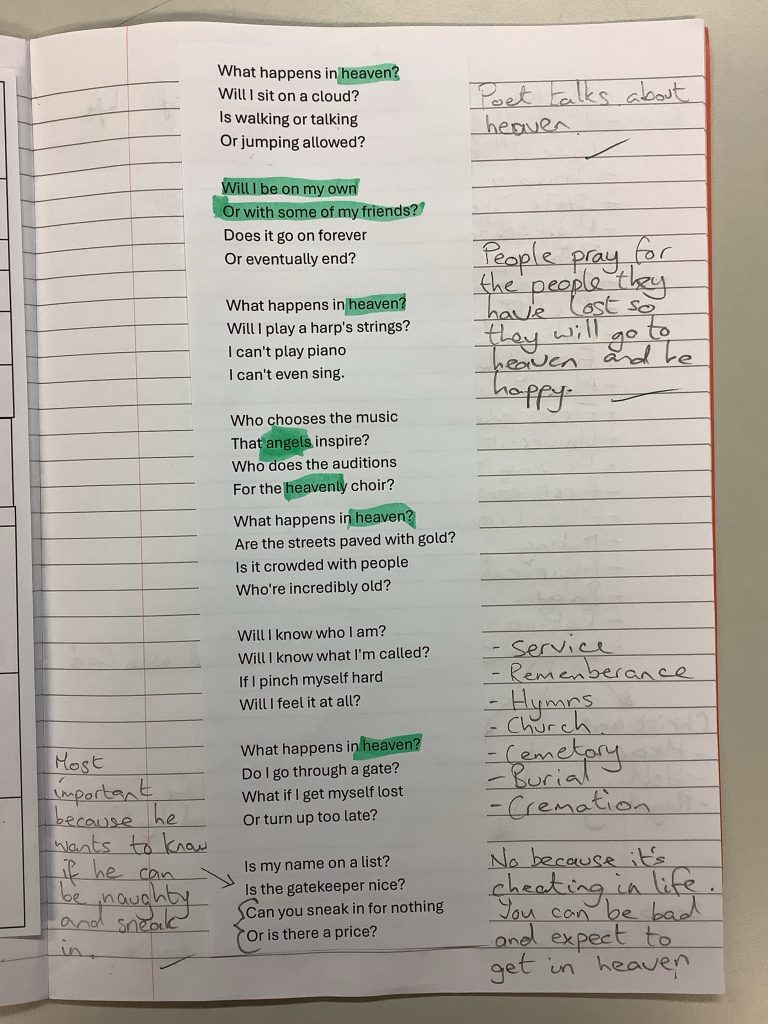 What happens in heaven?
Will I sit on a cloud?
Is walking or talking
Or jumping allowed?
Will I be on my own
Or with some of my friends?
Does it go on forever
Or eventually end?
What happens in heaven?
Will I play a harp's strings?
I can't play piano
I can't even sing.
Who chooses the music
That angels inspire?
Who does the auditions
For the heavenly choir?
What happens in heaven?
Are the streets paved with gold?
Is it crowded with people
Who're incredibly old?
Will I know who I am?
Will I know what I'm called?
If I pinch myself hard
Will I feel it at all?
What happens in heaven?
Do I go through a gate?
What if I get myself lost
Or turn up too late?
Is my name on a list?
Is the gatekeeper nice?
Can you sneak in for nothing
Or is there a price?
Poet talks about
heaven.
People pray for
the people they
have lost so
they will go to
heaven and be
happy.
- Service
- Remenberance
- Hymns
- Church.
- Cemetory
- Burial
- Cremation
No because it's
cheating in life.
You can be bad
and expect to
get in heaven
Most
important
because he
wants to know
if he can
be naughty
and sneak
in.